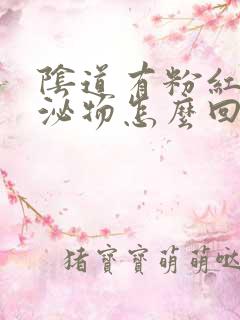 陰道有粉紅
泌物怎麼回
猪寶寶萌萌哒